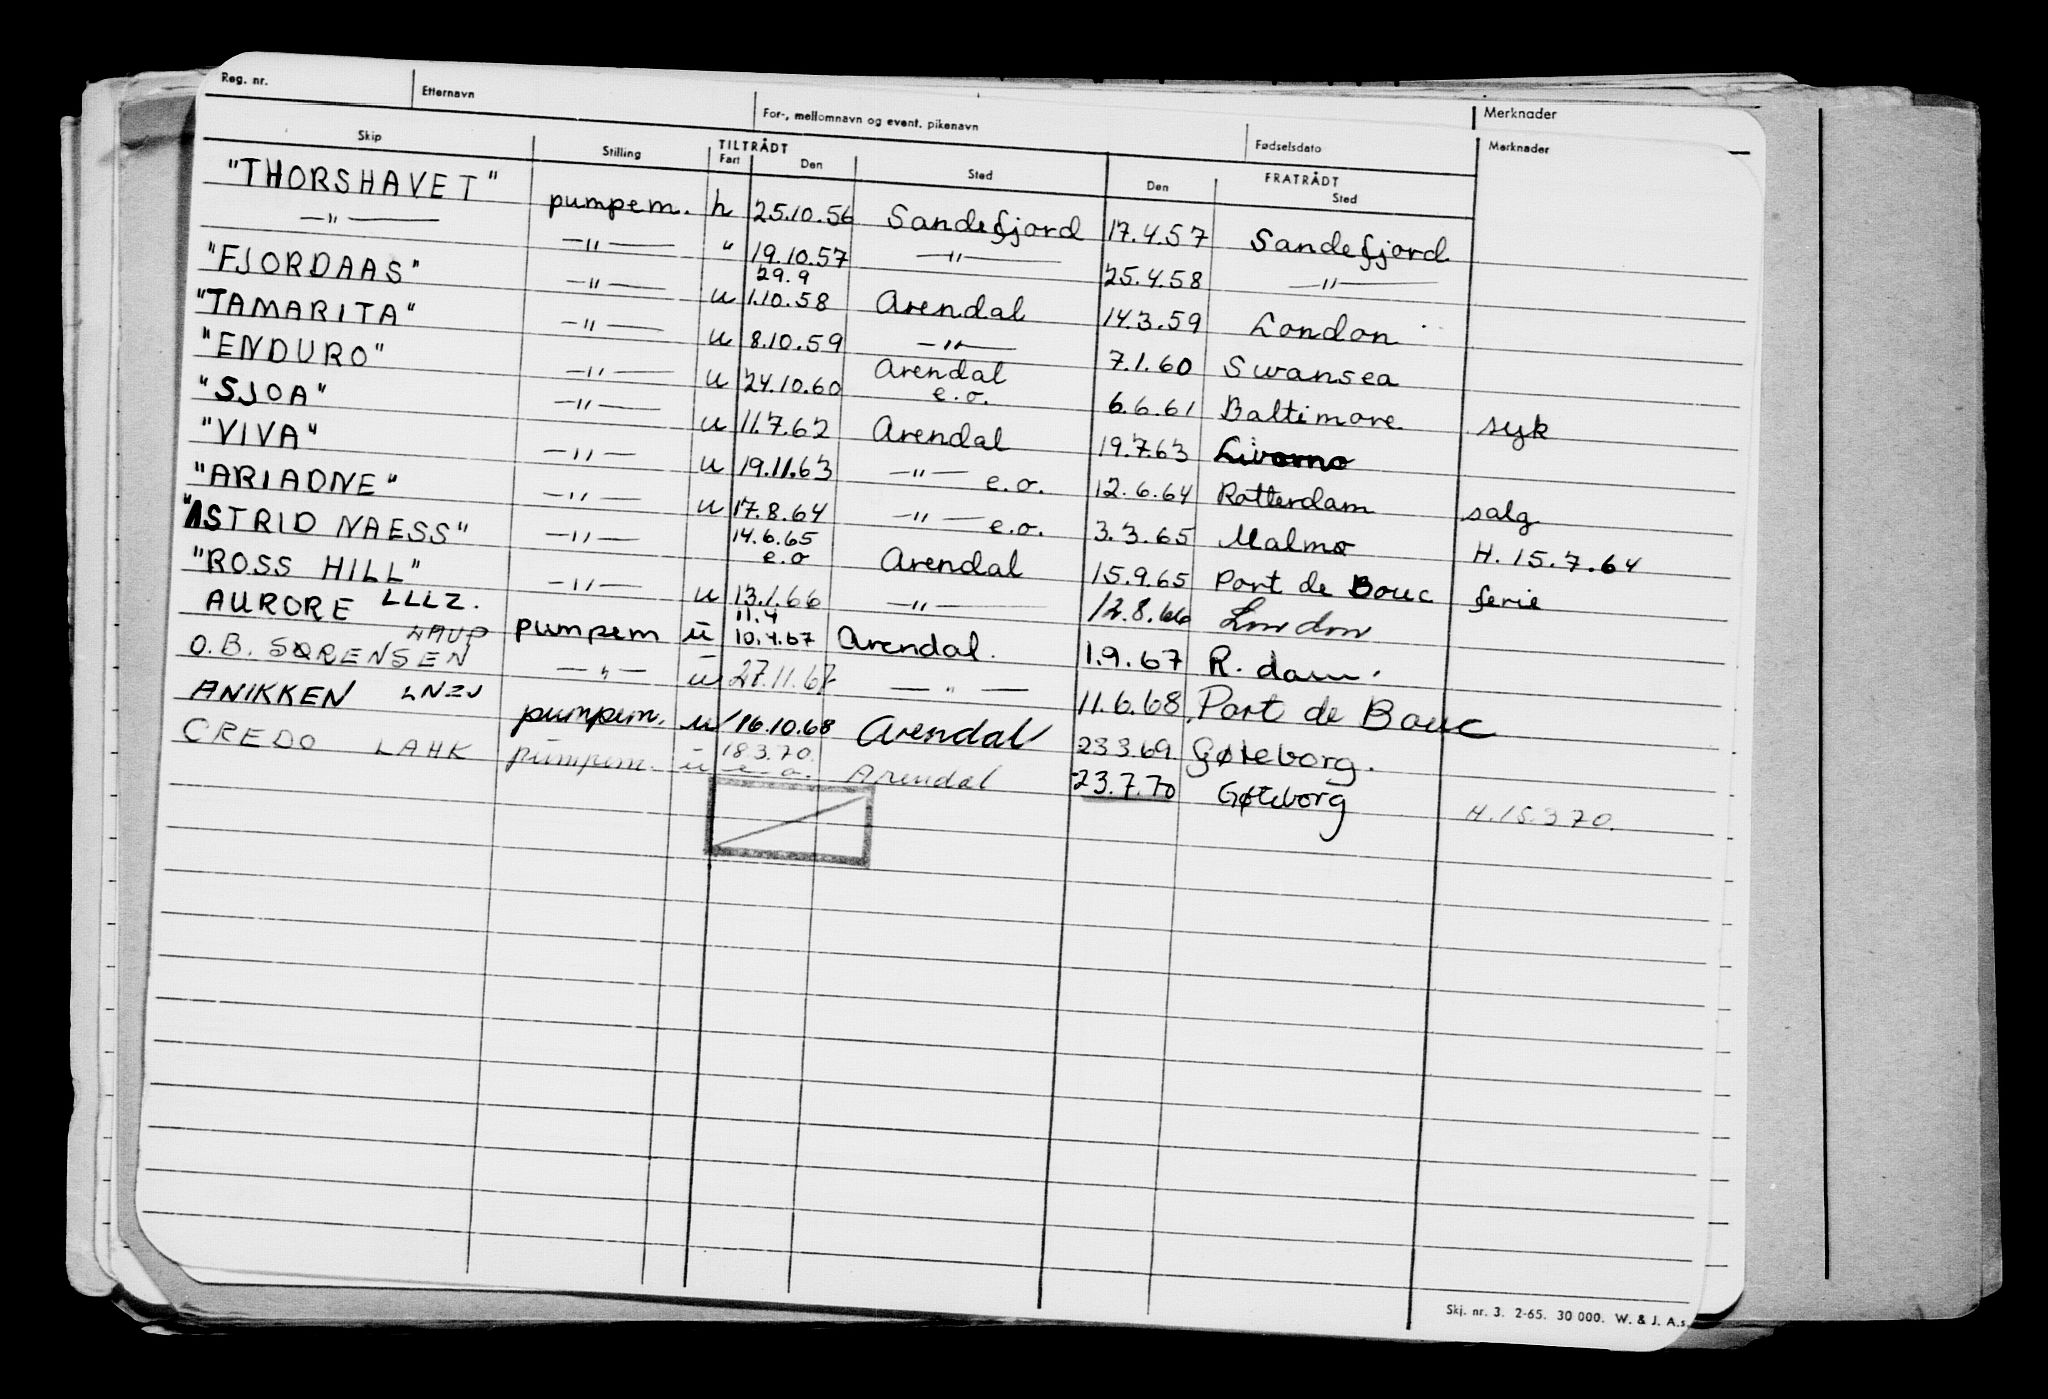 Reg. nr. Etternavn For-, mellomnavn og event. pikenavn Fødselsdato Merknader
Skip Stilling TILTRÅDT Fart Den Sted FRATRÅDT Den Sted Merknader
"THORSHAVET" pumpem. h 25.10.56 Sandefjord 17.4.57 Sandefjord
—"— —"— " 19.10.57 —"— 25.4.58 —"—
"FJORDAAS" —"— u 29.9 1.10.58 Arendal 14.3.59 London
"TAMARITA" —"— u 8.10.59 —"— 7.1.60 Swansea
"ENDURO" —"— u 24.10.60 Arendal e.o. 6.6.61 Baltimore syk
"SJOA" —"— u 11.7.62 Arendal 19.7.63 Livorno
"VIVA" —"— u 19.11.63 —"— e.o. 12.6.64 Rotterdam salg
"ARIADNE" —"— u 17.8.64 —"— e.o. 3.3.65 Malmø H. 15.7.64
"ASTRID NAESS" —"— 14.6.65 e.o Arendal 15.9.65 Port de Bouc ferie
"ROSS HILL" —"— u 13.1.66 —"— 12.8.66 London
AURORE LLLZ. pumpem u 11.4 10.4.67 Arendal. 1.9.67 R. dam.
O.B. SØRENSEN —"— u 27.11.67 —"— 11.6.68 Port de Bouc
ANIKKEN LNZU pumpem. u 16.10.68 Arendal 23.3.69 Gøteborg.
CREDO LAHK pumpem. u 18.3.70. e.o. Arendal 23.7.70 Gøteborg H.15.3.70.
Skj. nr. 3. 2-65. 30 000. W. & J. A.s.